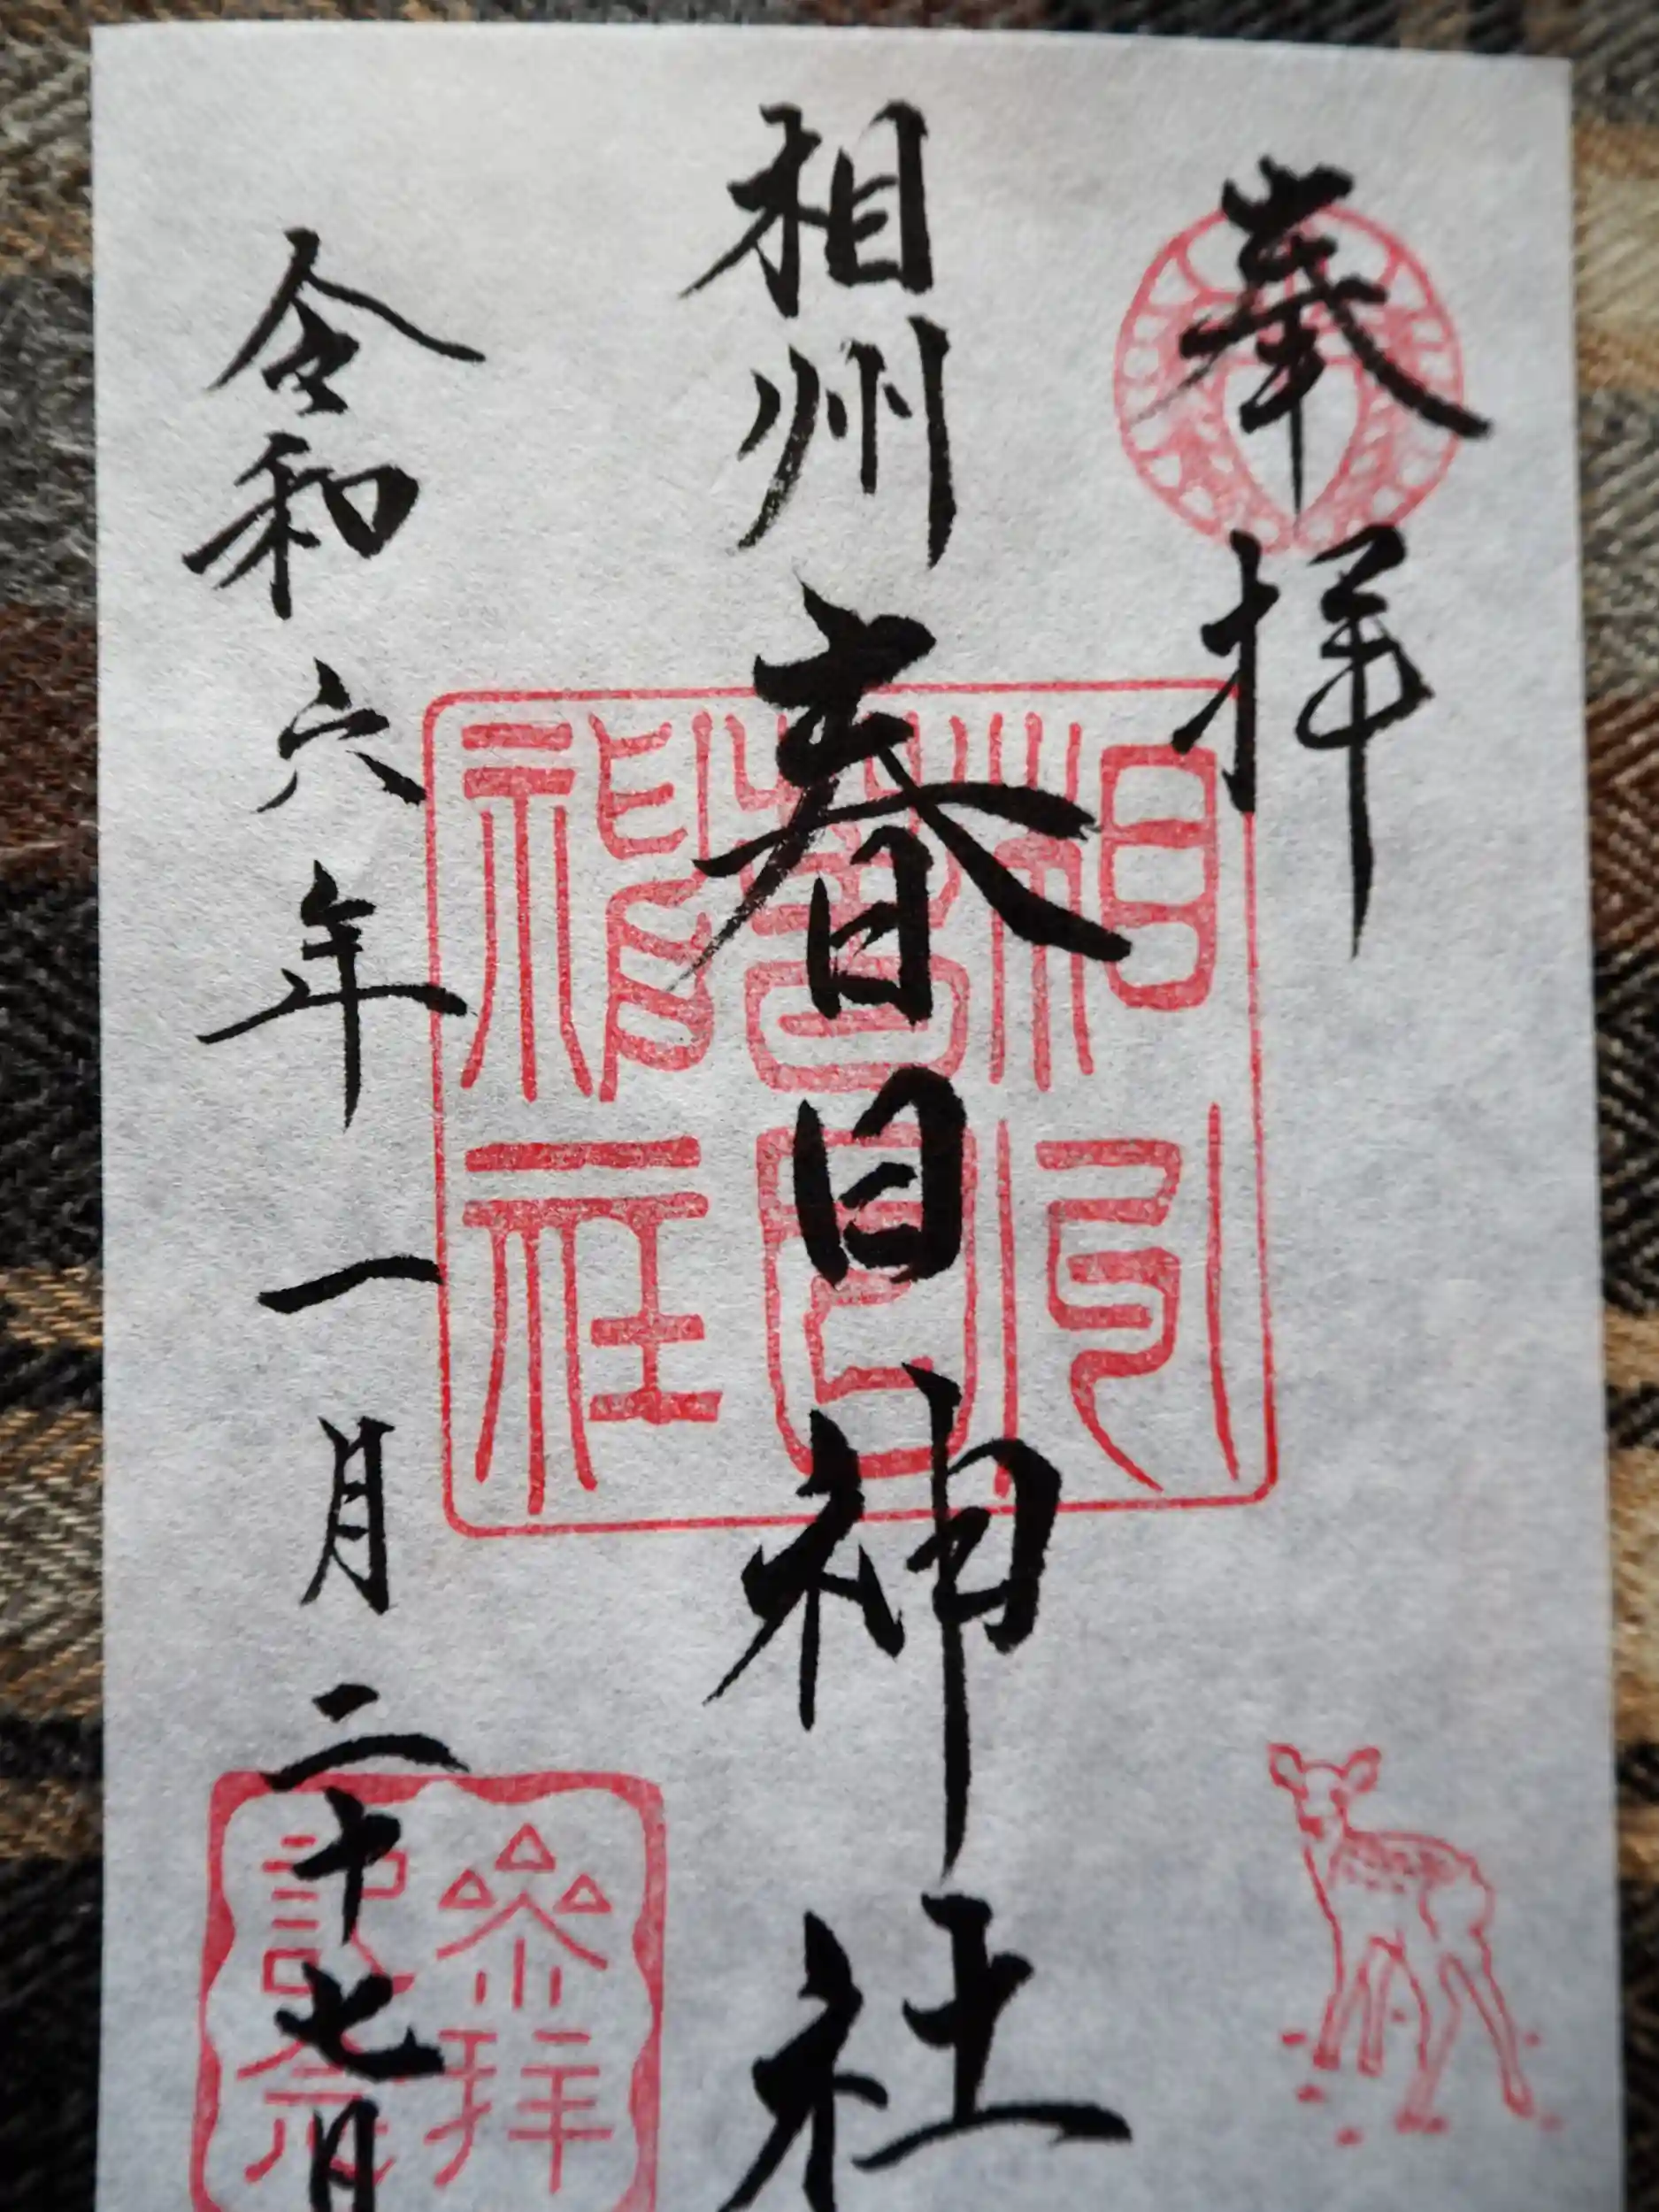 奉拝
相州春日神社
令和六年一月二十七日
相州
春日
神社
参拝
記念